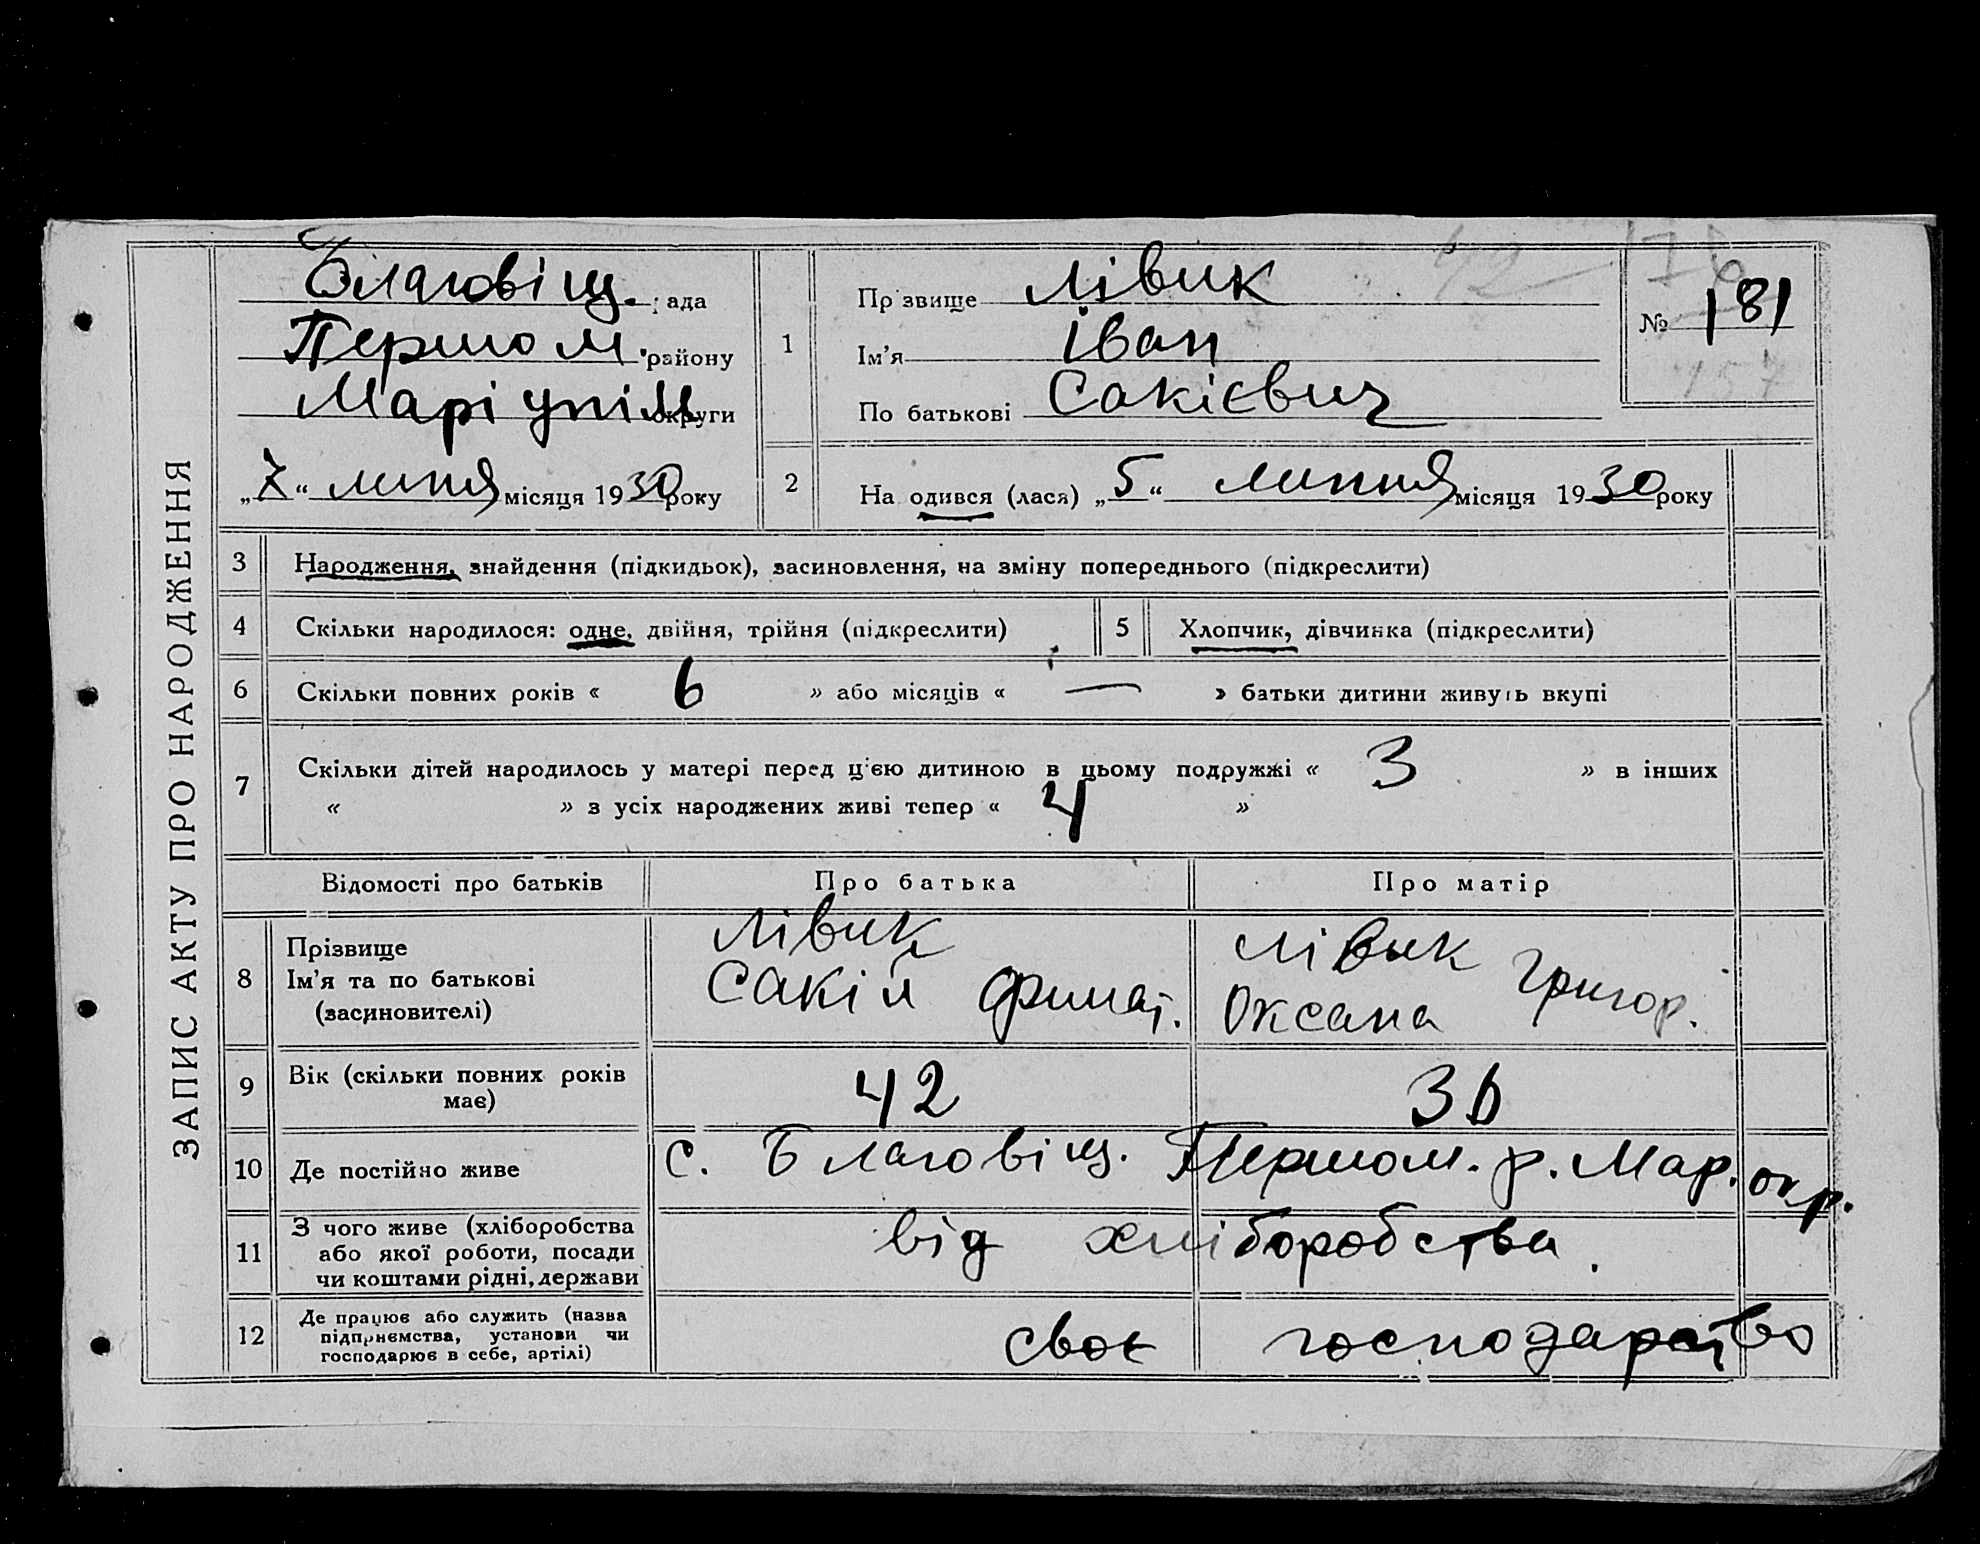 ЗАПИС АКТУ ПРО НАРОДЖЕННЯ
Благовіщ. рада
Першом. району
Маріупіл округи
„7“ липня місяця 1930 року
1
Прізвище Лівик
Ім’я Іван
По батькові Сакієвич
№ 181
42
157
2
На одився (лася) „5“ липня місяця 1930 року
3 Народження, знайдення (підкидьок), засиновлення, на зміну попереднього (підкреслити)
4 Скільки народилося: одне, двійня, трійня (підкреслити)
5 Хлопчик, дівчинка (підкреслити)
6 Скільки повних років « 6 » або місяців « — » батьки дитини живуть вкупі
7 Скільки дітей народилось у матері перед ц’єю дитиною в цьому подружжі « 3 » в інших
« » з усіх народжених живі тепер « 4 »
Відомості про батьків Про батька Про матір
8 Прізвище
Ім’я та по батькові
(засиновителі)
Лівик
Сакій
Лівик Григор.
Оксана
9 Вік (скільки повних років
має)
42 36
10 Де постійно живе с. Благовіщ. Першом. р. Мар. окр.
11 З чого живе (хліборобства
або якої роботи, посади
чи коштами рідні, держави
від хліборобства.
12 Де працює або служить (назва
підприємства, установи чи
господарює в себе, артілі)
своє господарство